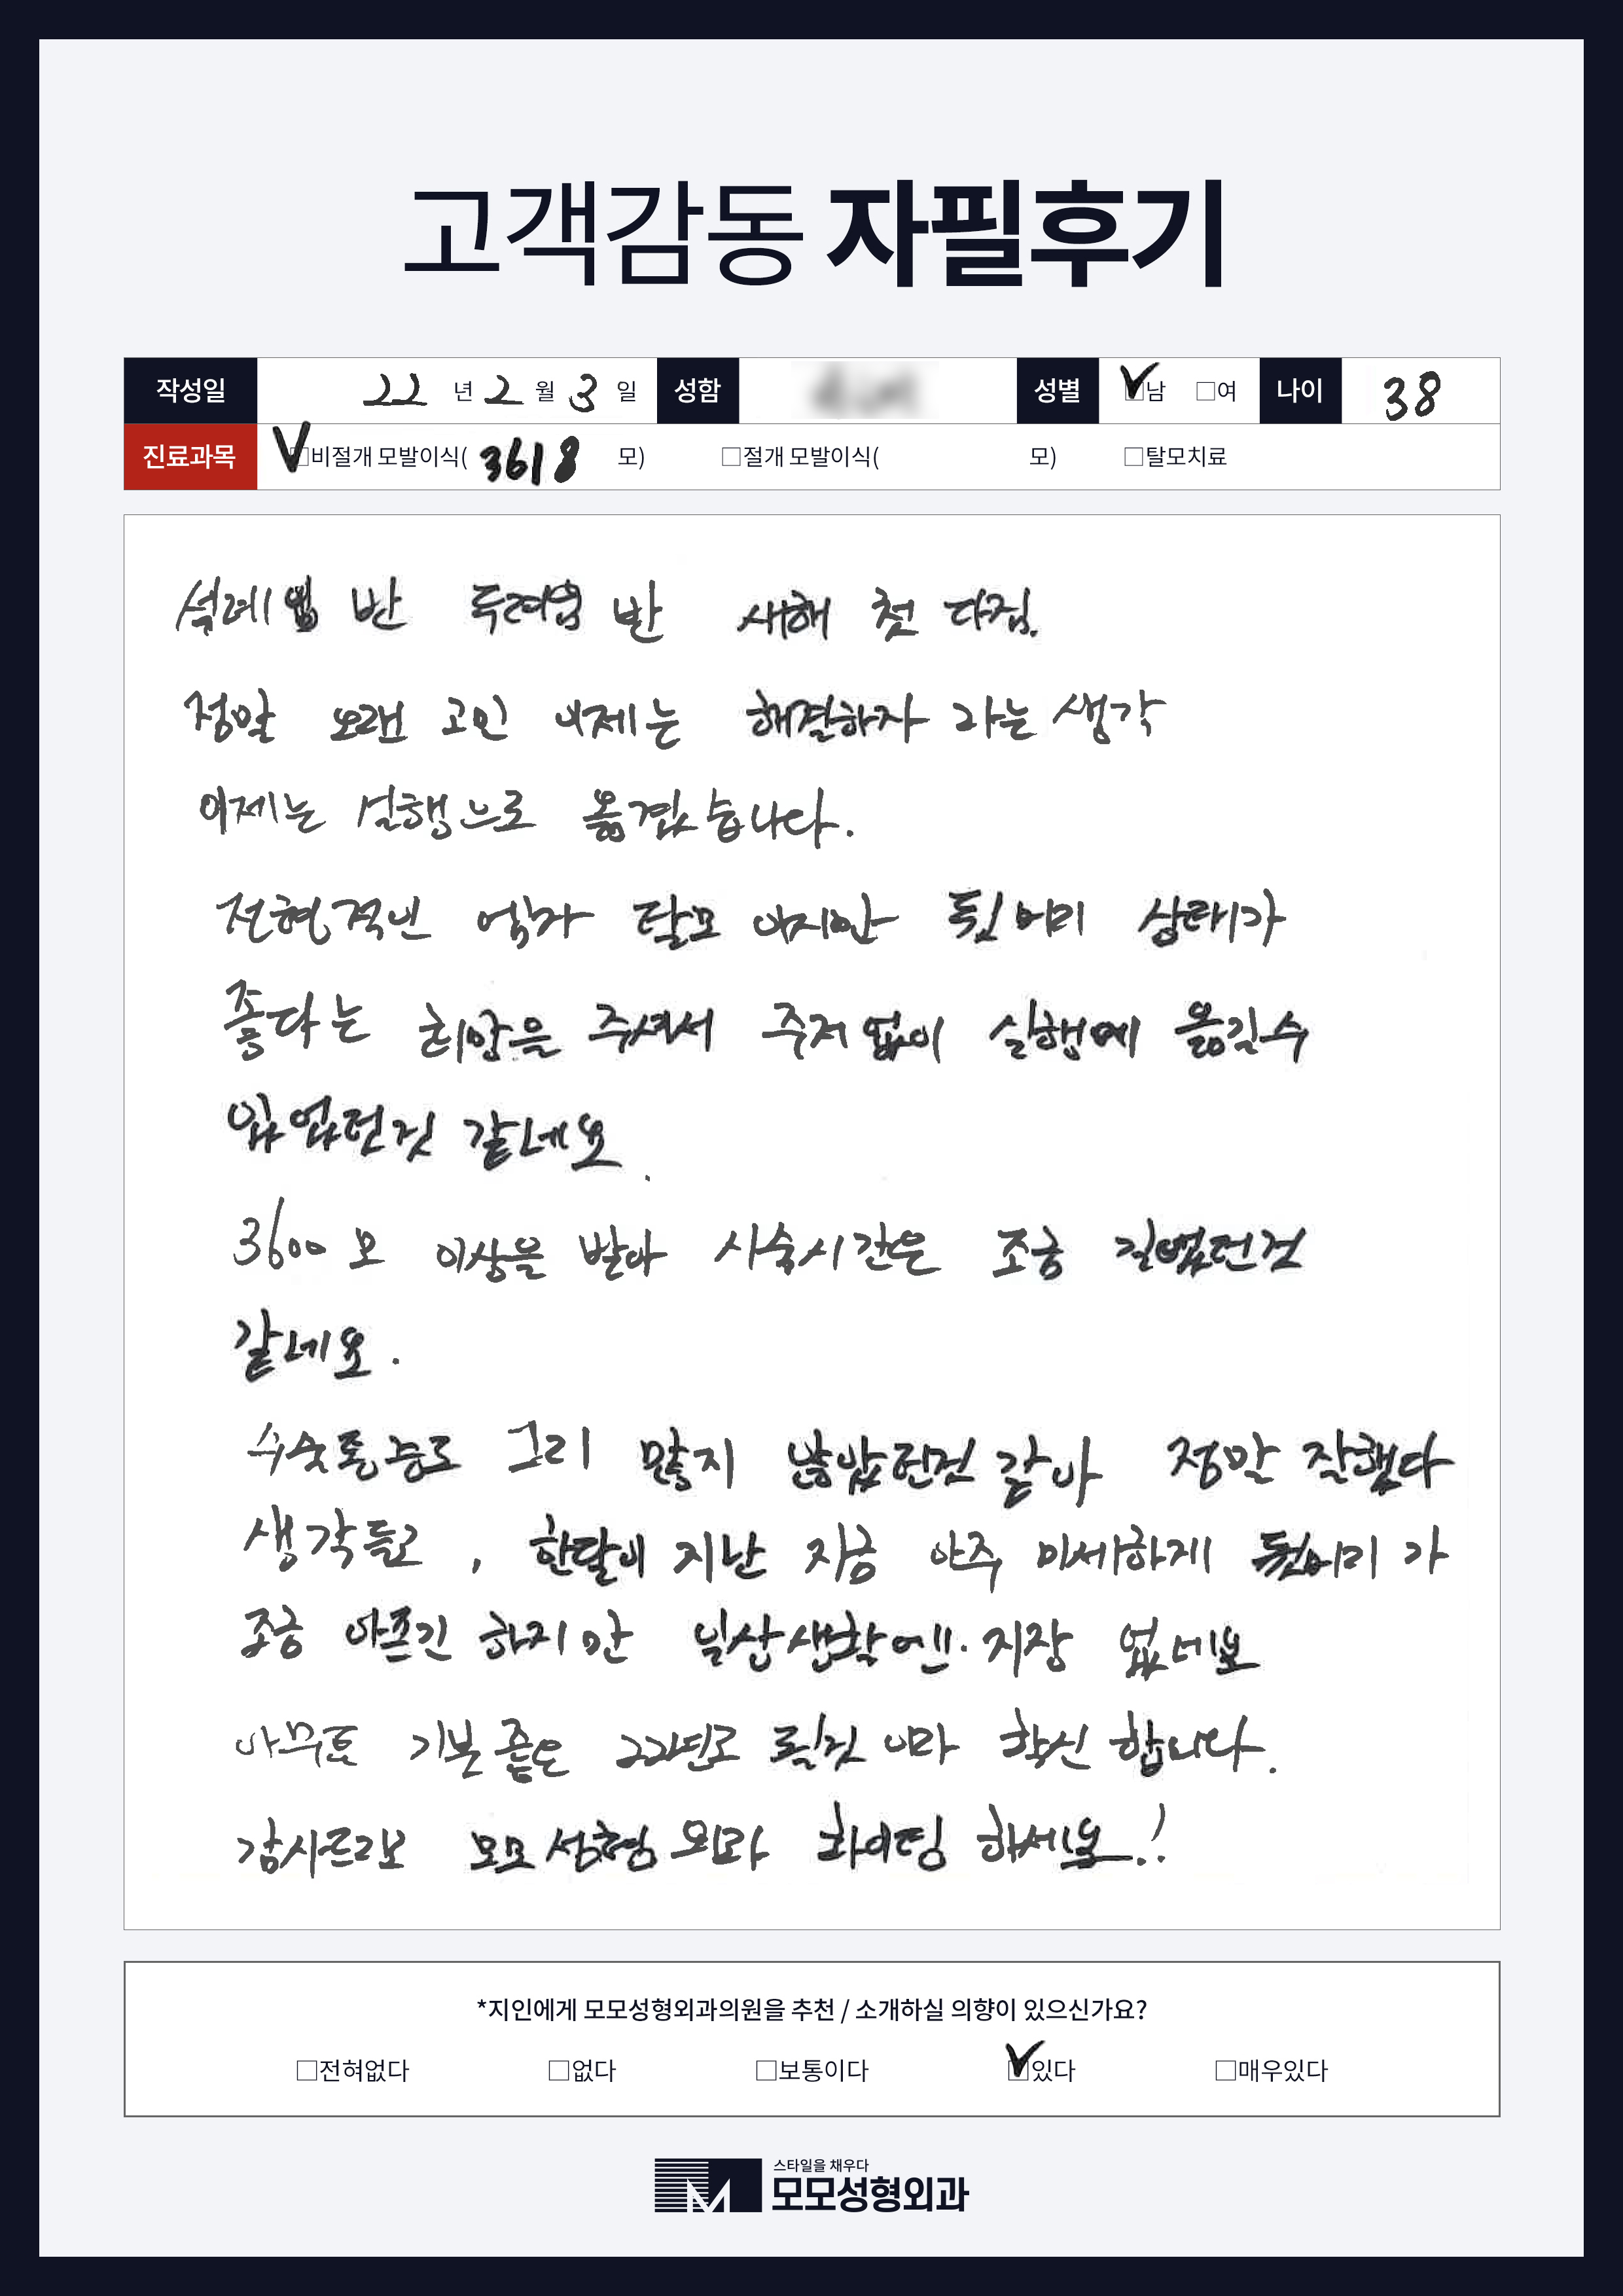 고객감동 자필후기
작성일 22 년 2 월 3 일 성함 성별 ☑남 □여 나이 38
진료과목 ☑비절개 모발이식( 3618 모) □절개 모발이식( 모) □탈모치료
반 두려움 반 새해 첫 다짐.
정말 오랜 고민 이제는 해결하자 라는 생각
이제는 실행으로 옮겼습니다.
전형적인 엠자 탈모 이지만 뒷머리 상태가
좋다는 희망을 주셔서 주저 없이 실행에 옮길수
있었던것 같네요.
3600 모 이상을 받아 시술시간은 조금 길었던것
같네요.
수술 통증도 그리 많지 않았던것 같아 정말 잘했다
생각들고, 한달이 지난 지금 아주 미세하게 뒷머리가
조금 아프긴 하지만 일상생활에는 지장 없네요
아무튼 기분 좋은 22년도 될것 이라 확신 합니다.
감사드리고 모모성형외과 화이팅 하세요!!
*지인에게 모모성형외과의원을 추천 / 소개하실 의향이 있으신가요?
□전혀없다 □없다 □보통이다 ☑있다 □매우있다
스타일을 채우다
모모성형외과